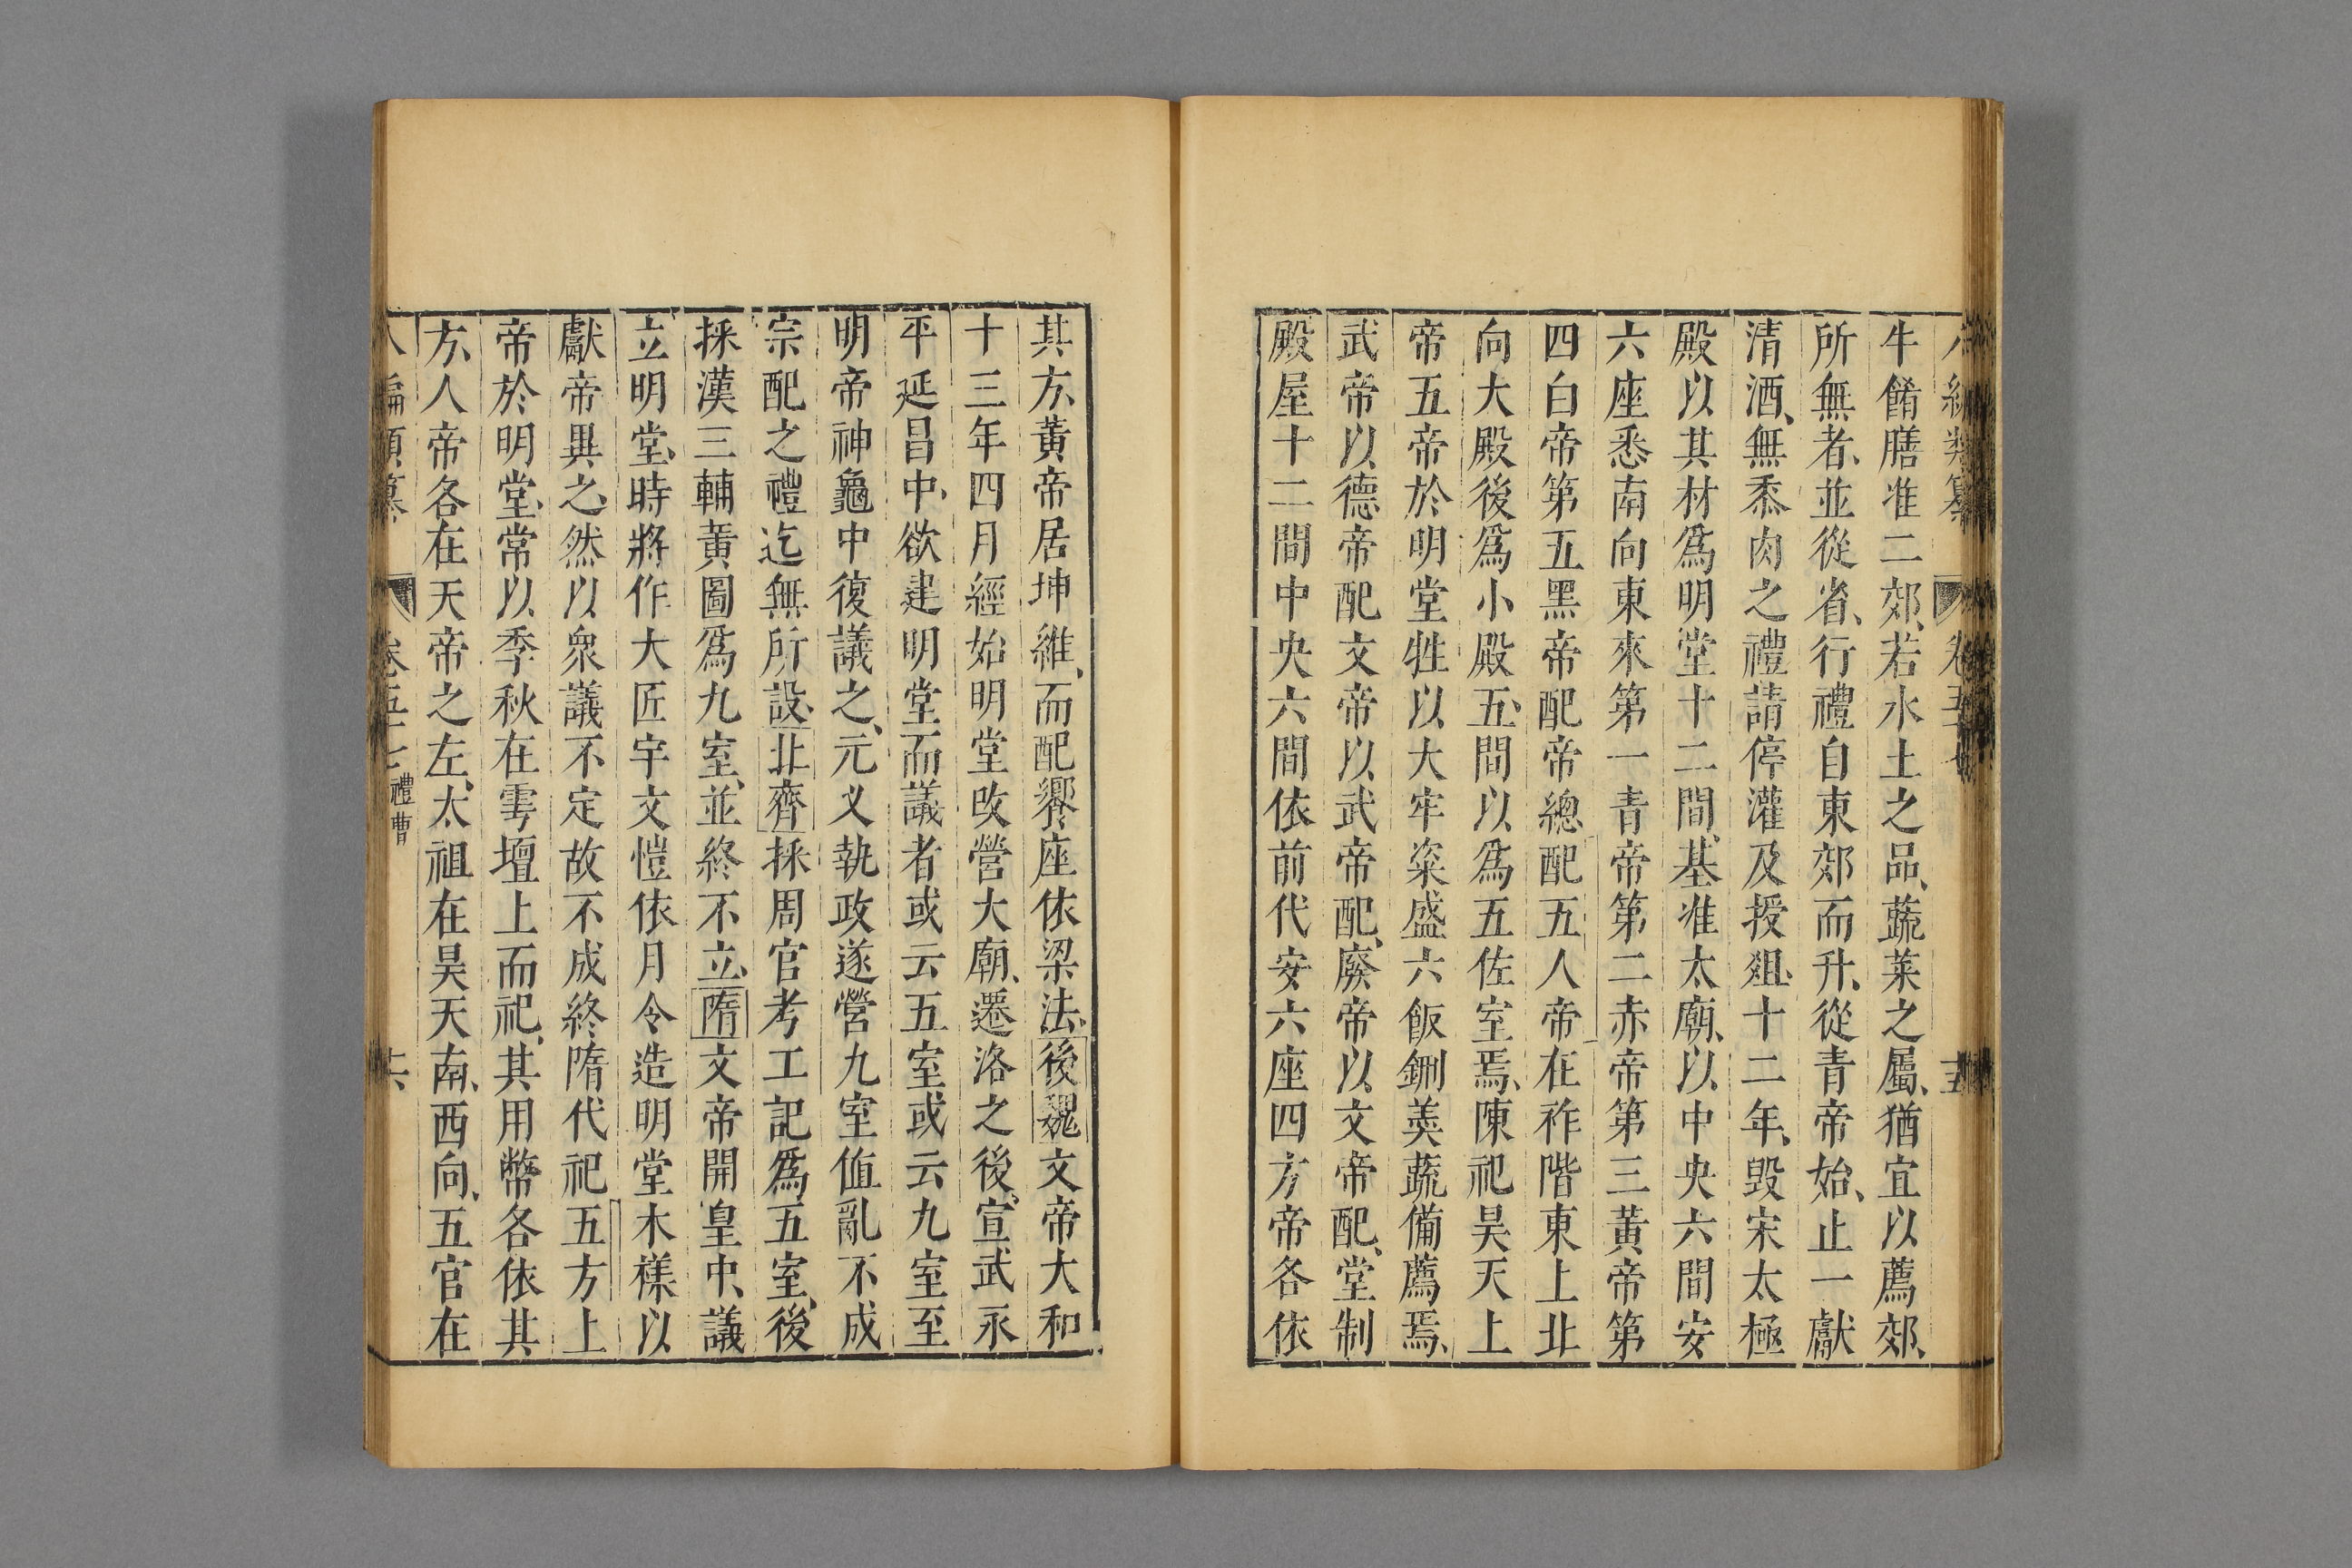 八編類纂 卷五十七 十五
牛餚膳准二郊、若水土之品、蔬菜之屬、猶宜以薦郊、
所無者、並從省、行禮自東郊而升、從青帝始、止一獻
清酒、無黍肉之禮請停灌及授俎、十二年、毀宋太極
殿以其材爲明堂十二間、基准太廟、以中央六間安
六座悉南向東來第一青帝第二赤帝第三黃帝第
四白帝第五黑帝配帝總配五人帝在祚階東上北
向大殿後爲小殿五、間以爲五佐室焉、陳祀昊天上
帝五帝於明堂牲以大牢粢盛六飯鉶羮蔬備薦焉、
武帝以德帝配文帝以武帝配、廢帝以文帝配、堂制
殿屋十二間中央六間依前代安六座四方帝各依
其方、黃帝居坤維、而配饗座依梁法、後魏文帝大和
十三年四月經始明堂改營大廟、遷洛之後、宣武永
平延昌中、欲建明堂而議者或云五室或云九室至
明帝神龜中復議之、元义執政遂營九室值亂不成
宗配之禮迄無所設、北齊採周官考工記爲五室、後
採漢三輔黃圖爲九室、並終不立、隋文帝開皇中、議
立明堂、時將作大匠宇文愷依月令造明堂木㨾以
獻帝異之、然以衆議不定故不成終隋代祀五方上
帝於明堂、常以季秋在雩壇上而祀、其用幣各依其
方、人帝各在天帝之左、太祖在昊天南、西向、五官在
八編類纂 卷五十七 禮曹 十六